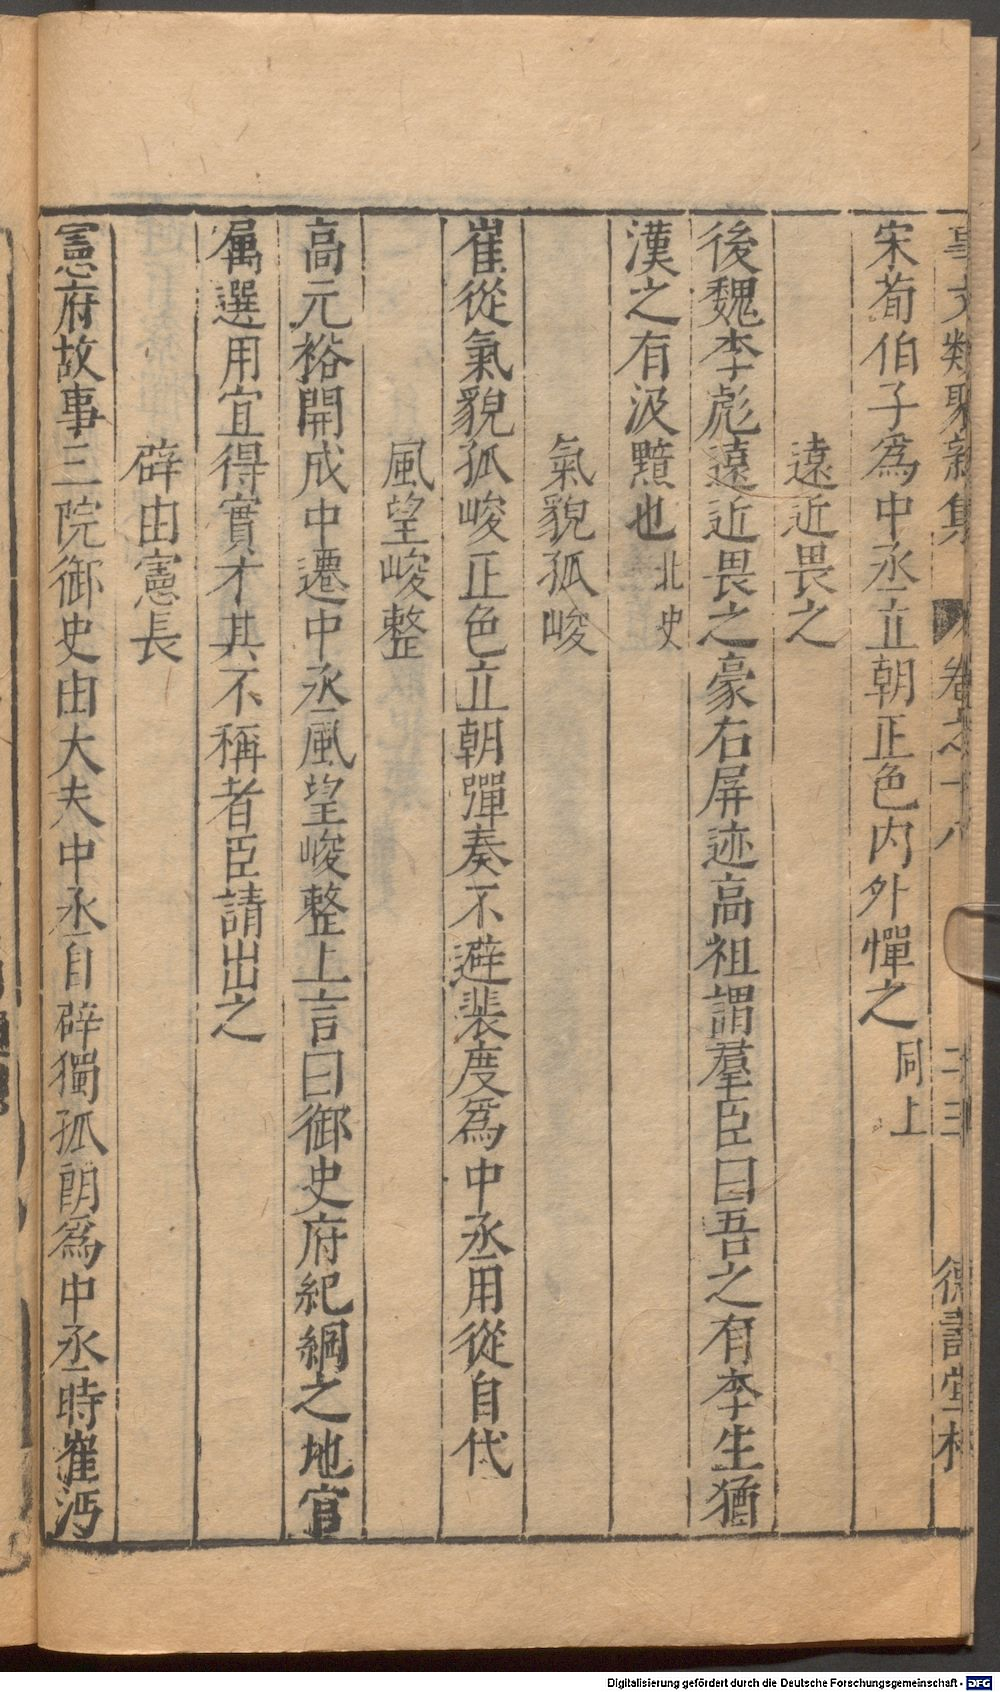 事文類聚新集 卷之十八 二十三 德壽堂梓
宋荀伯子為中丞立朝正色内外憚之同上
遠近畏之
後魏李彪遠近畏之豪右屏迹高祖謂羣臣曰吾之有李生猶
漢之有汲黯也北史
氣貌孤峻
崔從氣貌孤峻正色立朝彈奏不避裴度為中丞用從自代
風望峻整
高元裕開成中遷中丞風望峻整上言曰御史府紀綱之地官
属選用宜得實才其不稱者臣請出之
辟由憲長
憲府故事三院御史由大夫中丞自辟獨孤朗為中丞時崔沔
Digitalisierung gefördert durch die Deutsche Forschungsgemeinschaft - DFG